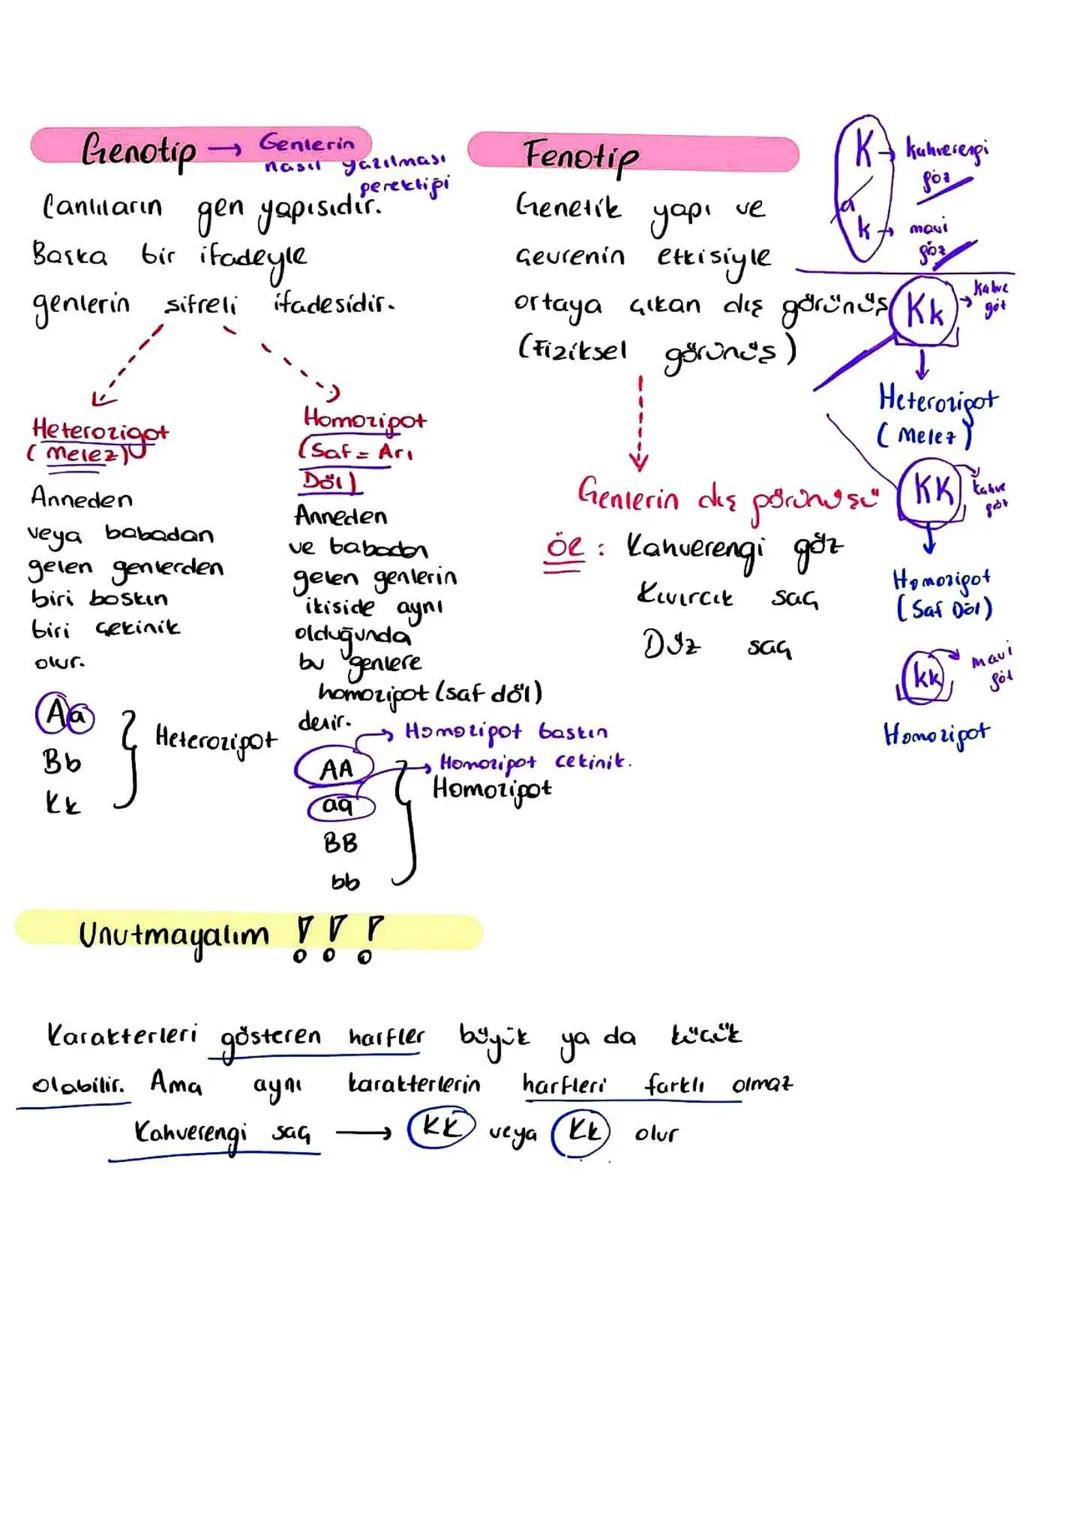 Genotip → Genlerin
nasıl yazılması
gerektiği
Canlıların gen yapısıdır.
Başka bir ifadeyle
genlerin şifreli ifadesidir.
Heterozigot
(Melez)
Anneden
veya babadan
gelen genlerden
biri baskın
biri çekinik
olur.
Aa
Bb
Kk
Heterozigot
Homozigot
(Saf = Arı
Döl)
Anneden
ve babadan
gelen genlerin
ikiside aynı
olduğunda
bu genlere
homozigot (saf döl)
denir.
→ Homozigot baskın
AA → Homozigot çekinik.
aa
BB
bb
Homozigot
Fenotip
Genetik yapı ve
çevrenin etkisiyle
ortaya çıkan dış görünüş
(Fiziksel görünüş)
Genlerin dış görünüşü
ÖR : Kahverengi göz
Kıvırcık saç
Düz saç
K → kahverengi
göz
a
k → mavi
göz
Kk → Kahve
göz
Heterozigot
(Melez)
KK kahve
göz
Homozigot
(Saf Döl)
kk mavi
göz
Homozigot
Unutmayalım !!!
Karakterleri gösteren harfler büyük ya da küçük
olabilir. Ama aynı karakterlerin harfleri farklı olmaz
Kahverengi saç → KK veya Kk olur